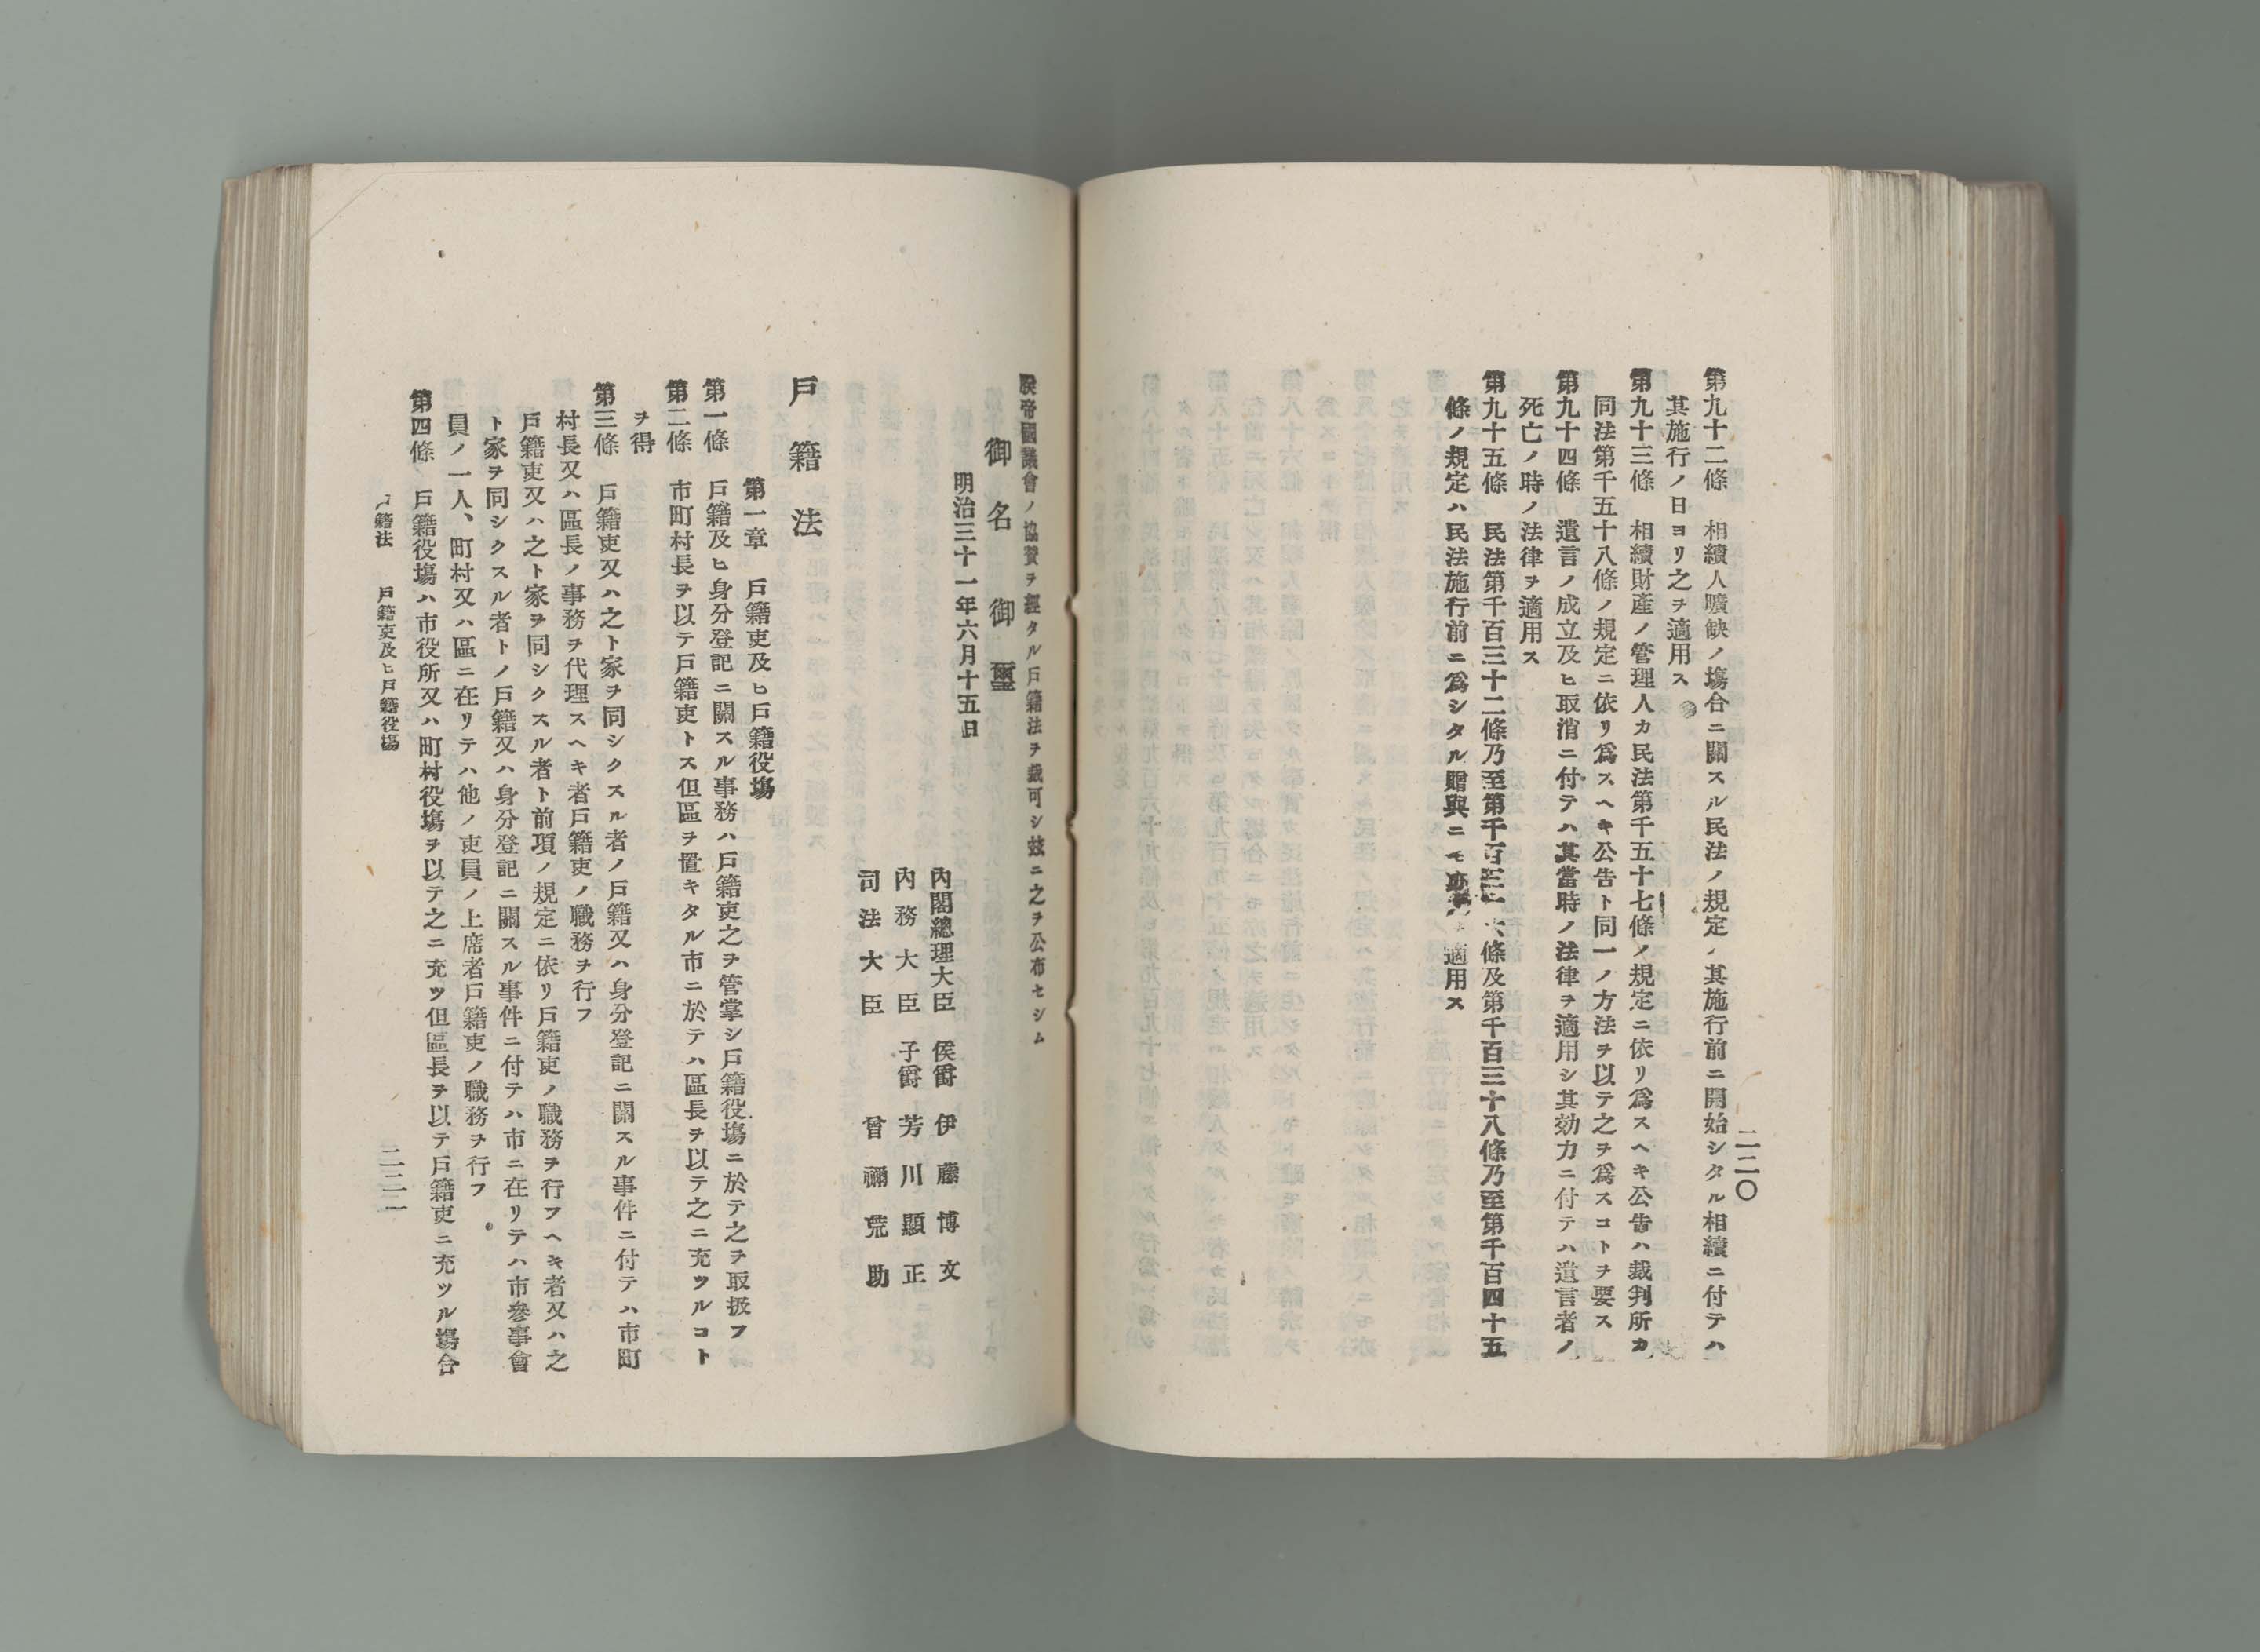 二二〇
第九十二條 相續人曠缺ノ塲合ニ關スル民法ノ規定ハ其施行前ニ開始シタル相續ニ付テハ
其施行ノ日ヨリ之ヲ適用ス
第九十三條 相續財產ノ管理人カ民法第千五十七條ノ規定ニ依リ爲スヘキ公告ハ裁判所カ
同法第千五十八條ノ規定ニ依リ爲スヘキ公告ト同一ノ方法ヲ以テ之ヲ爲スコトヲ要ス
第九十四條 遺言ノ成立及ヒ取消ニ付テハ其當時ノ法律ヲ適用シ其効力ニ付テハ遺言者ノ
死亡ノ時ノ法律ヲ適用ス
第九十五條 民法第千百三十二條乃至第千百三十六條及第千百三十八條乃至第千百四十五
條ノ規定ハ民法施行前ニ爲シタル贈與ニモ亦適用ス
朕帝國議會ノ協贊ヲ經タル戶籍法ヲ裁可シ玆ニ之ヲ公布セシム
御名 御璽
明治三十一年六月十五日
內閣總理大臣 侯爵 伊藤博文
內務大臣 子爵 芳川顯正
司法大臣 曾禰荒助
戶籍法
第一章 戶籍吏及ヒ戶籍役塲
第一條 戶籍及ヒ身分登記ニ關スル事務ハ戶籍吏之ヲ管掌シ戶籍役塲ニ於テ之ヲ取扱フ
第二條 市町村長ヲ以テ戶籍吏トス但區ヲ置キタル市ニ於テハ區長ヲ以テ之ニ充ツルコト
ヲ得
第三條 戶籍吏又ハ之ト家ヲ同シクスル者ノ戶籍又ハ身分登記ニ關スル事件ニ付テハ市町
村長又ハ區長ノ事務ヲ代理スヘキ者戶籍吏ノ職務ヲ行フ
戶籍吏又ハ之ト家ヲ同シクスル者ト前項ノ規定ニ依リ戶籍吏ノ職務ヲ行フヘキ者又ハ之
ト家ヲ同シクスル者トノ戶籍又ハ身分登記ニ關スル事件ニ付テハ市ニ在リテハ市參事會
員ノ一人、町村又ハ區ニ在リテハ他ノ吏員ノ上席者戶籍吏ノ職務ヲ行フ
第四條 戶籍役塲ハ市役所又ハ町村役塲ヲ以テ之ニ充ツ但區長ヲ以テ戶籍吏ニ充ツル塲合
戶籍法 戶籍吏及ヒ戶籍役塲
二二一